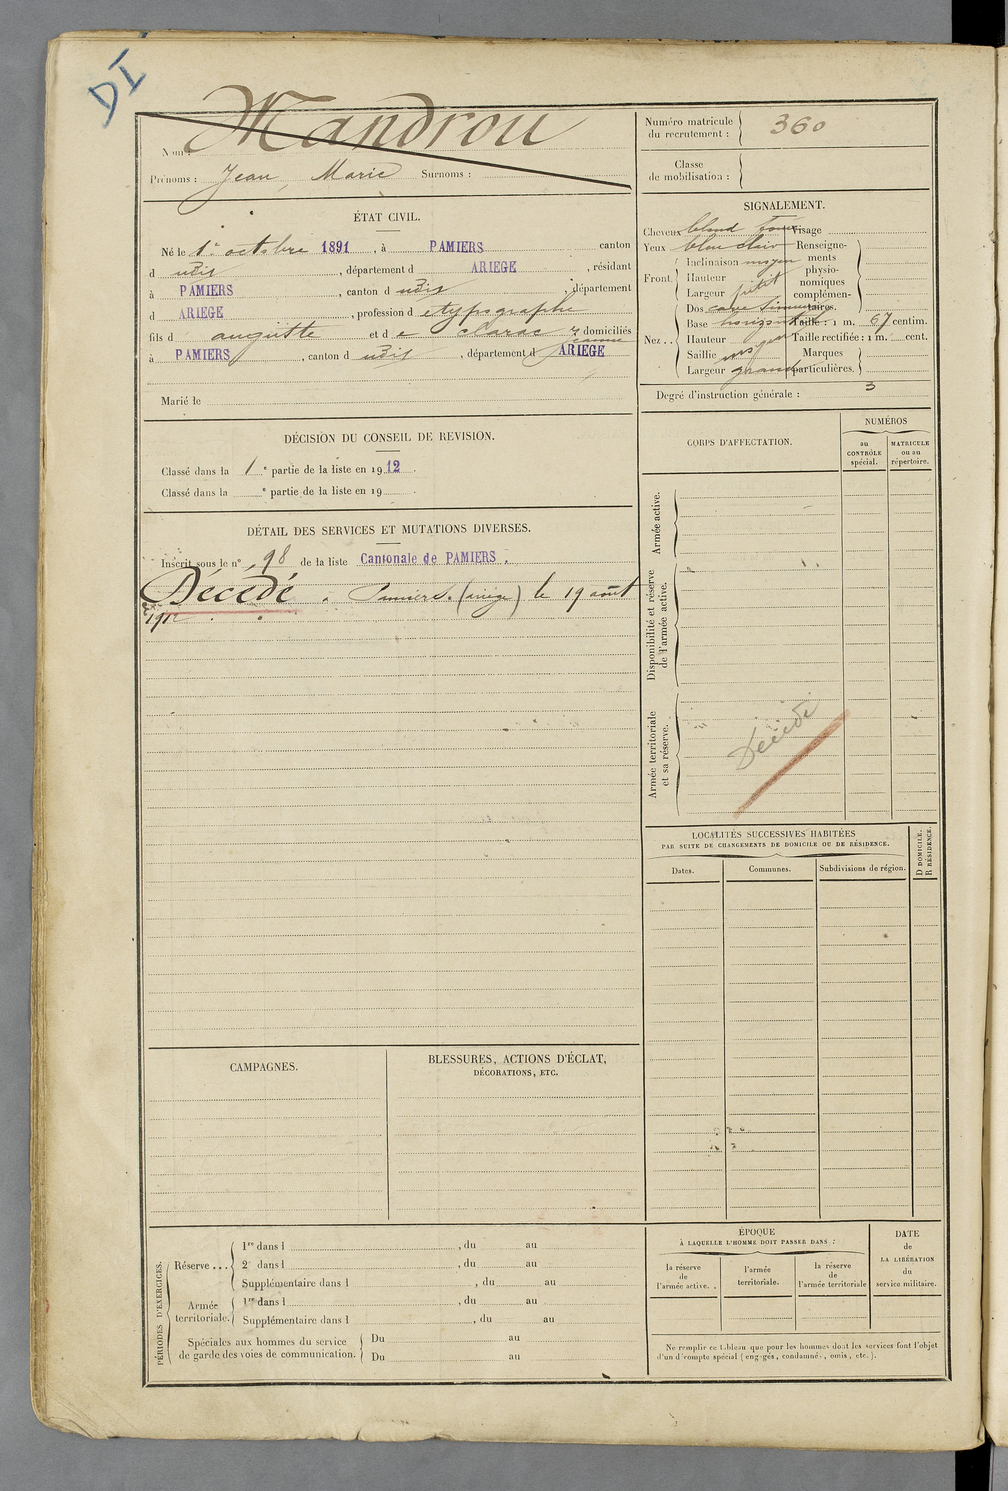 DI
Nom : Mandrou
Prénoms : Jean, Marie Surnoms :
Numéro matricule du recrutement : 360
Classe de mobilisation :
ÉTAT CIVIL.
Né le 1er octobre 1891, à PAMIERS canton
d udit, département d ARIEGE, résidant
à PAMIERS, canton d udit, département
d ARIEGE, profession d e typographe
fils d auguste et d e clarac Jeanne, domiciliés
à PAMIERS, canton d udit, département d ARIEGE
Marié le
SIGNALEMENT.
Cheveux blond
Yeux bleu clair
Front.
Inclinaison moyen
Hauteur
Largeur petit
Nez..
Dos cave sinueux
Base horizontale
Hauteur
Saillie moyen
Largeur grand
Visage
Renseignements physionomiques complémentaires.
Taille : 1 m. 67 centim.
Taille rectifiée : 1 m. cent.
Marques particulières.
Degré d'instruction générale : 3
DÉCISION DU CONSEIL DE REVISION.
Classé dans la 1e partie de la liste en 1912.
Classé dans la e partie de la liste en 19
DÉTAIL DES SERVICES ET MUTATIONS DIVERSES.
Inscrit sous le n° 98 de la liste Cantonale de PAMIERS.
Décédé à Pamiers (ariège) le 19 août
1912
CORPS D'AFFECTATION.
NUMÉROS
au CONTRÔLE spécial.
MATRICULE ou au répertoire.
Armée active.
Disponibilité et réserve de l'armée active.
Armée territoriale et sa réserve.
Décédé
LOCALITÉS SUCCESSIVES HABITÉES
PAR SUITE DE CHANGEMENTS DE DOMICILE OU DE RÉSIDENCE.
Dates.
Communes.
Subdivisions de région.
D DOMICILE.
R RÉSIDENCE.
CAMPAGNES.
BLESSURES, ACTIONS D'ÉCLAT,
DÉCORATIONS, ETC.
PÉRIODES D'EXERCICES.
Réserve ...
1re dans l , du au
2e dans l , du au
Supplémentaire dans l , du au
Armée territoriale.
1re dans l , du au
Supplémentaire dans l , du au
Spéciales aux hommes du service
de garde des voies de communication.
Du au
Du au
ÉPOQUE
À LAQUELLE L'HOMME DOIT PASSER DANS :
la réserve de l'armée active.
l'armée territoriale.
la réserve de l'armée territoriale
DATE
de
LA LIBÉRATION
du
service militaire.
Ne remplir ce tableau que pour les hommes dont les services font l'objet
d'un décompte spécial (engagés, condamnés, omis, etc.).